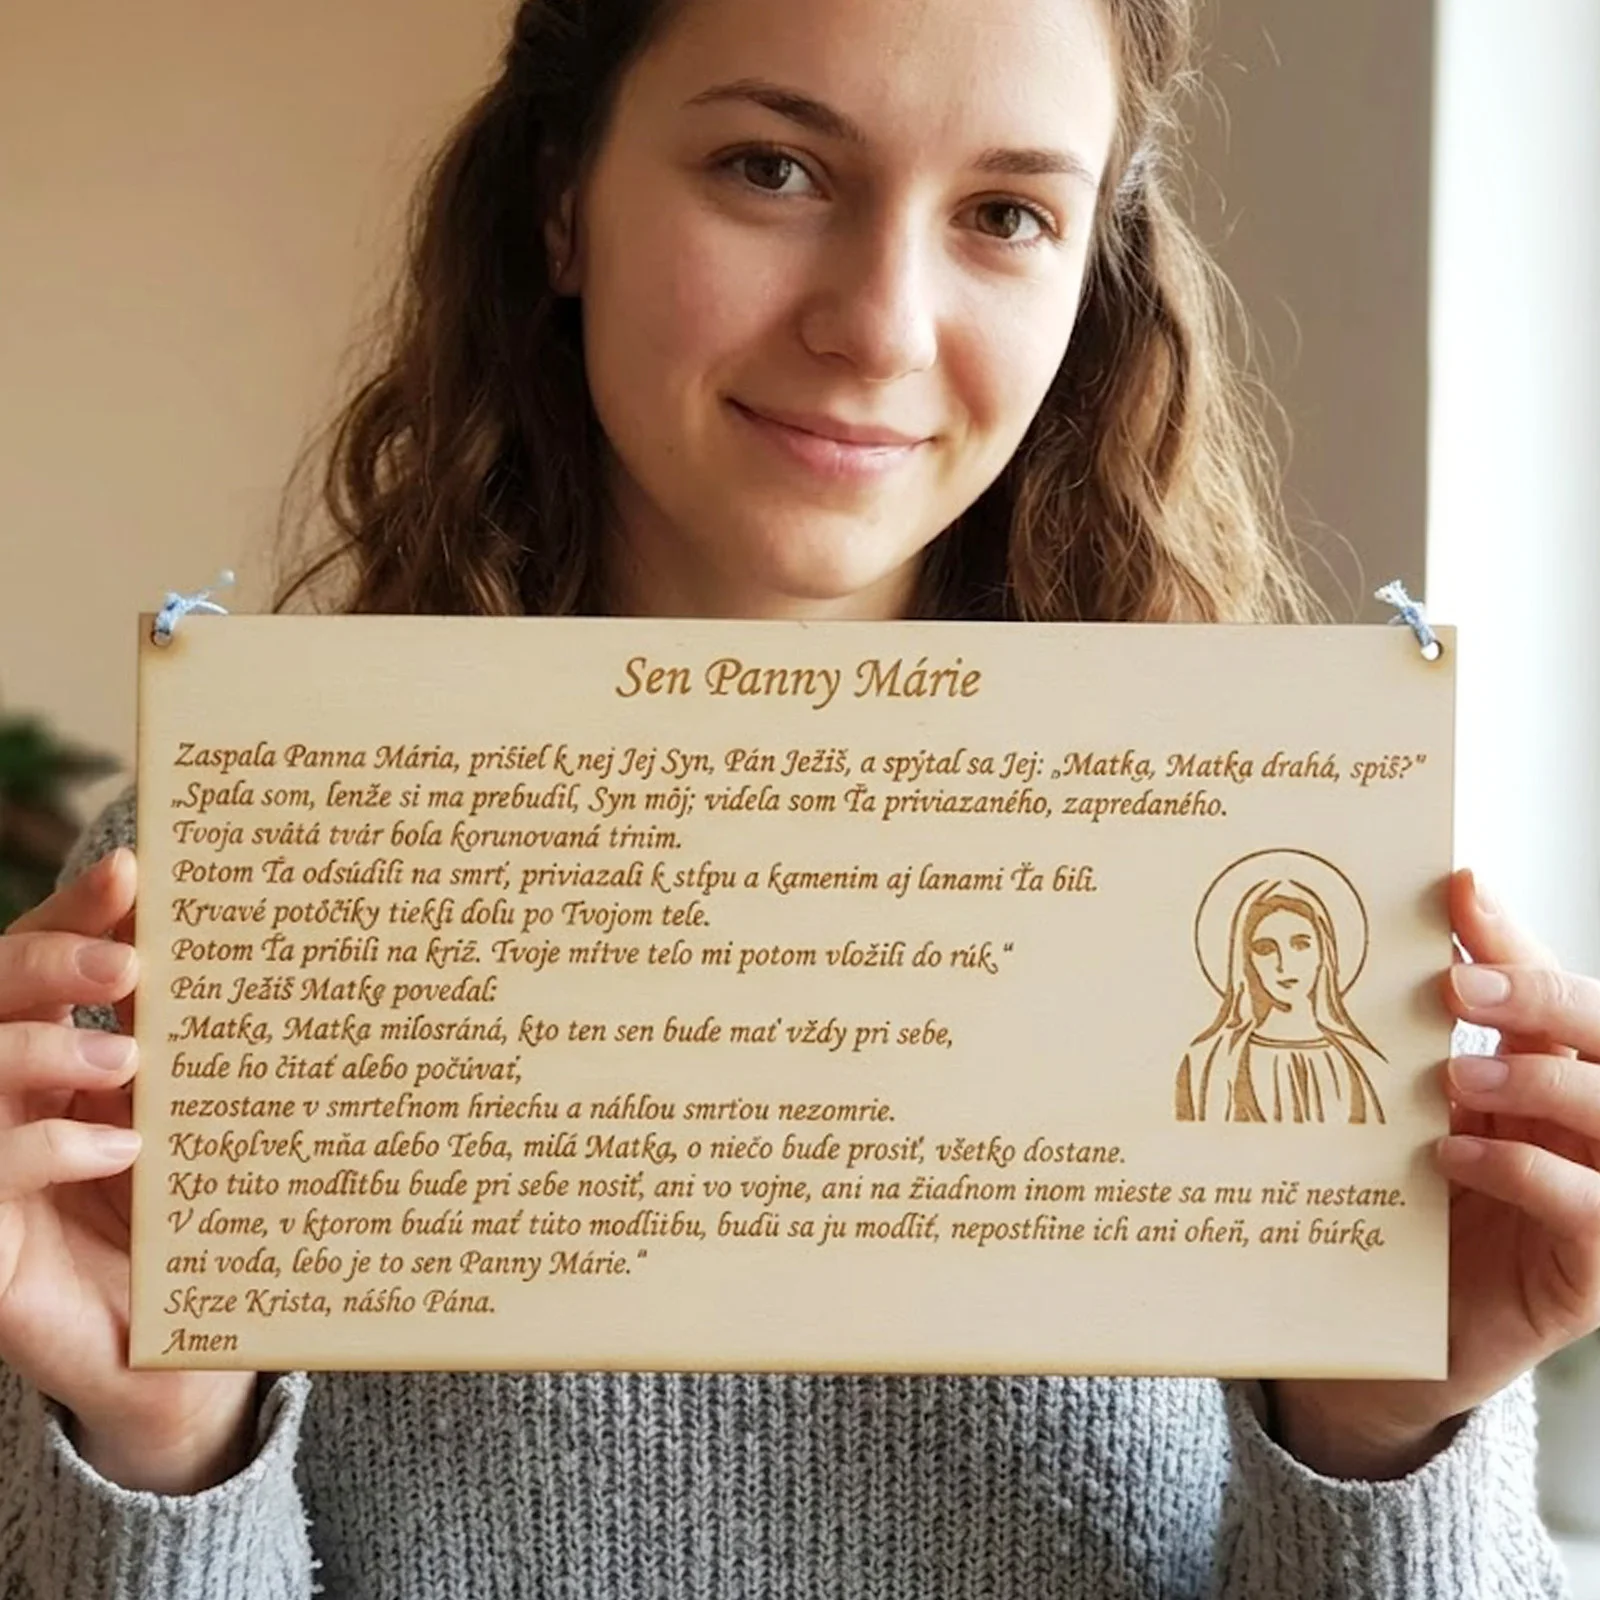 Sen Panny Márie
Zaspala Panna Mária, prišiel k nej Jej Syn, Pán Ježiš, a spýtal sa Jej: „Matka, Matka drahá, spiš?”
„Spala som, lenže si ma prebudil, Syn môj; videla som Ťa priviazaného, zapredaného.
Tvoja svätá tvár bola korunovaná tŕním.
Potom Ťa odsúdili na smrť, priviazali k stĺpu a kamením aj lanami Ťa bili.
Krvavé potôčiky tiekli dolu po Tvojom tele.
Potom Ťa pribili na kríž. Tvoje mŕtve telo mi potom vložili do rúk.“
Pán Ježiš Matke povedal:
„Matka, Matka milosráná, kto ten sen bude mať vždy pri sebe,
bude ho čítať alebo počúvať,
nezostane v smrteľnom hriechu a náhlou smrťou nezomrie.
Ktokoľvek mňa alebo Teba, milá Matka, o niečo bude prosiť, všetko dostane.
Kto túto modlitbu bude pri sebe nosiť, ani vo vojne, ani na žiadnom inom mieste sa mu nič nestane.
V dome, v ktorom budú mať túto modlitbu, budú sa ju modliť, neposthine ich ani oheň, ani búrka
ani voda, lebo je to sen Panny Márie.“
Skrze Krista, nášho Pána.
Amen